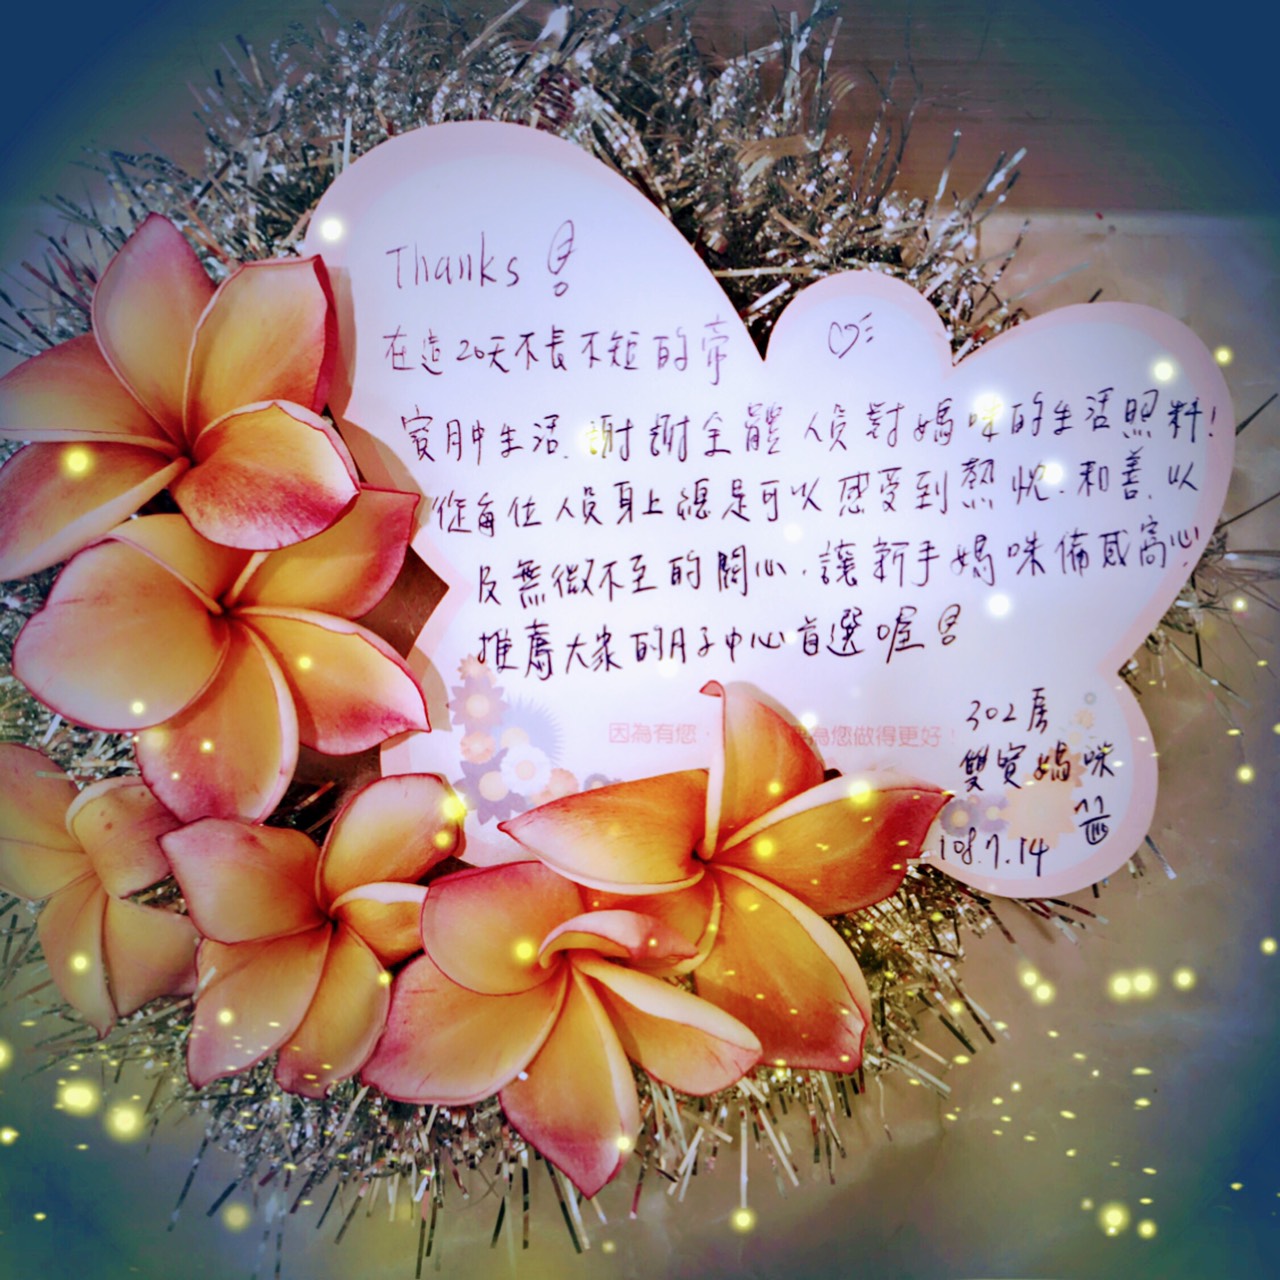 Thanks!
在這20天不長不短的帝
寶月中生活,謝謝全體人員對媽咪的生活照料!
從每位人員身上總是可以感受到熱忱、和善、以
及無微不至的關心,讓新手媽咪備感窩心,
推薦大家的月子中心首選喔!
因為有您,
為您做得更好!
302房
雙寶媽咪
108.7.14